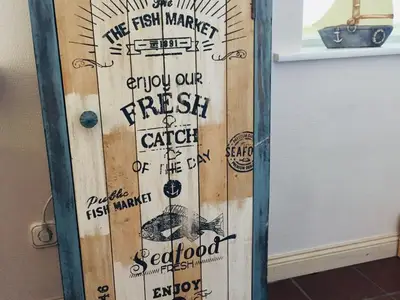 The
THE FISH MARKET
Nº 1991
enjoy OUR
FRESH
CATCH
OF THE DAY
SEAFOOD
Public
FISH MARKET
Seafood
FRESH
ENJOY